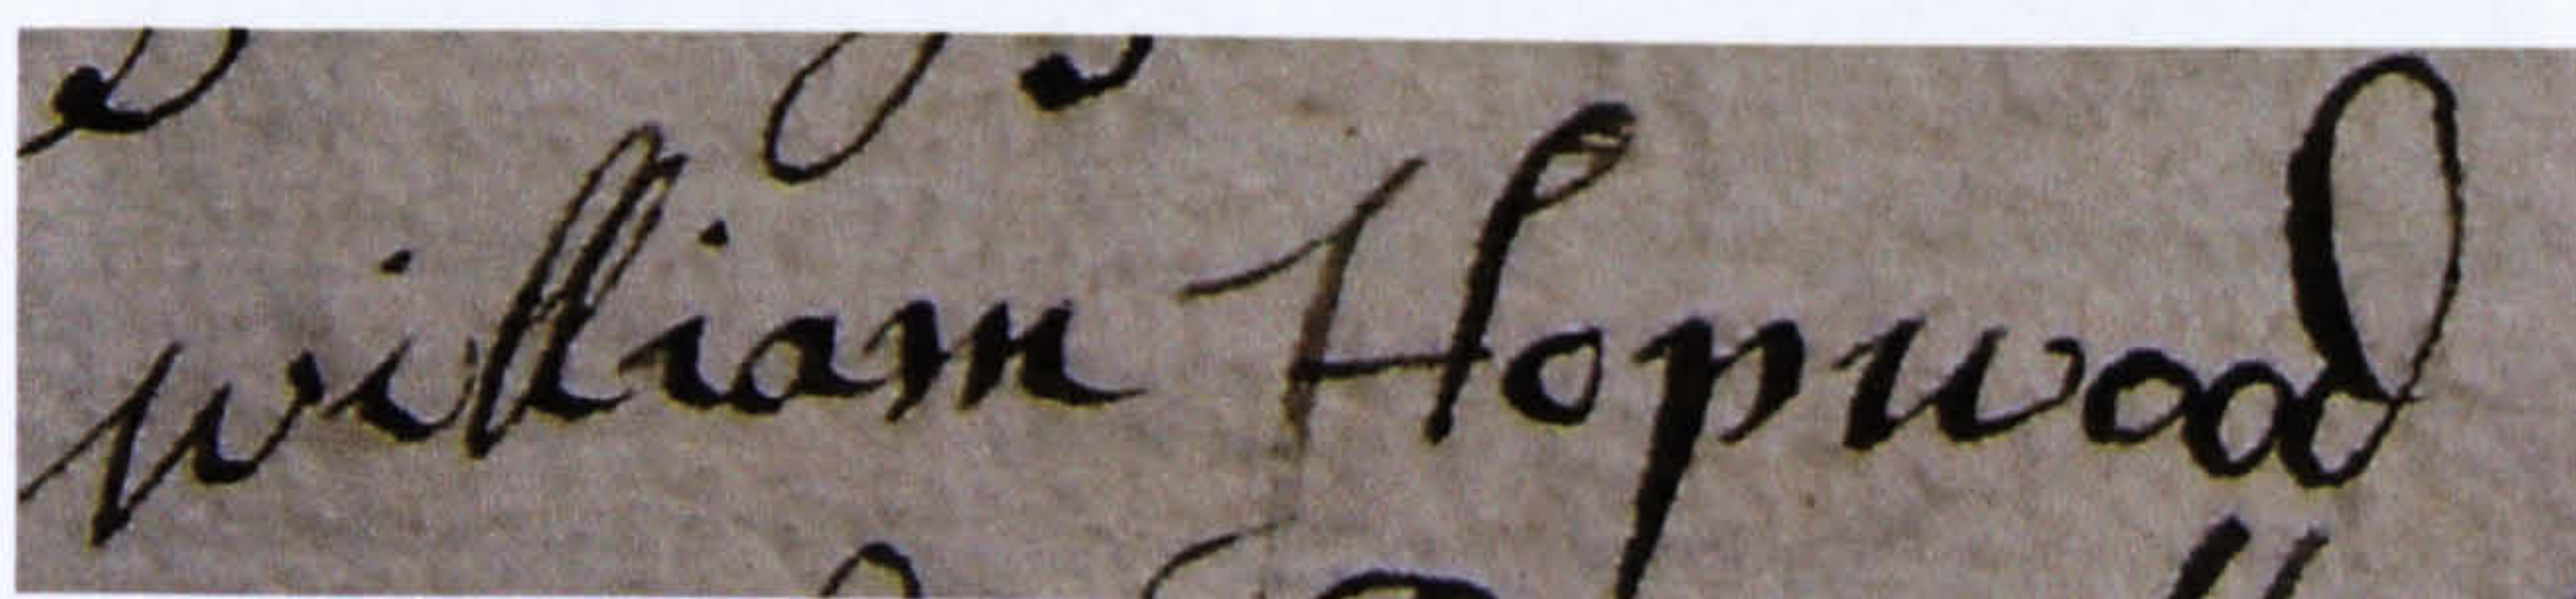 william Hopwood